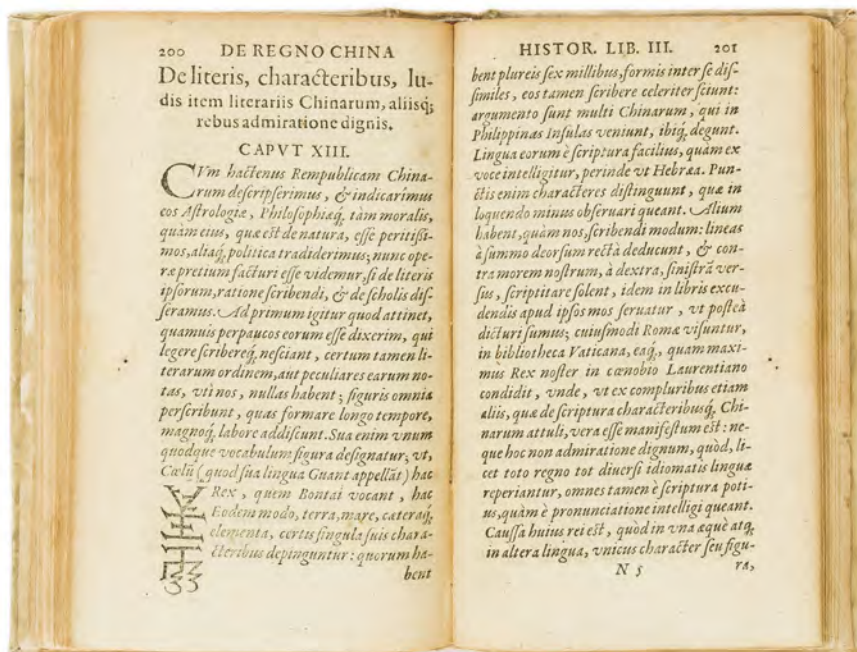 200 DE REGNO CHINA
De literis, characteribus, lu-
dis item literariis Chinarum, aliisq;
rebus admiratione dignis.
CAPVT XIII.
CVm hactenus Rempublicam China-
rum descripserimus, & indicarimus
eos Astrologiæ, Philosophiæq́, tàm moralis,
quàm eius, quæ est de natura, esse peritißi-
mos, aliaq́, politica tradiderimus; nunc ope-
ræ pretium facturi esse videmur, si de literis
ipsorum, ratione scribendi, & de scholis dis-
seramus. Ad primum igitur quod attinet,
quamuis perpaucos eorum esse dixerim, qui
legere scribereq́, nesciant, certum tamen li-
terarum ordinem, aut peculiares earum no-
tas, vti nos, nullas habent; figuris omnia
perscribunt, quas formare longo tempore,
magnoq́, labore addiscunt. Sua enim vnum
quodque vocabulum figura designatur; vt,
Cœlũ (quod sua lingua Guant appellãt) hac
Rex, quem Bontai vocant, hac
Eodem modo, terra, mare, cæteraq́,
elementa, certis singula suis chara-
cteribus depinguntur: quorum ha-
bent
HISTOR. LIB. III. 201
bent plureis sex millibus, formis inter se dis-
similes, eos tamen scribere celeriter sciunt:
argumento sunt multi Chinarum, qui in
Philippinas Insulas veniunt, ibiq́, degunt.
Lingua eorum è scriptura facilius, quàm ex
voce intelligitur, perinde vt Hebræa. Pun-
ctis enim characteres distinguunt, quæ in
loquendo minus obseruari queant. Alium
habent, quàm nos, scribendi modum: lineas
à summo deorsum rectà deducunt, & con-
tra morem nostrum, à dextra, sinistrã ver-
sus, scriptitare solent, idem in libris excu-
dendis apud ipsos mos seruatur, vt posteà
dicturi sumus; cuiusmodi Romæ visuntur,
in bibliotheca Vaticana, eaq́, quam maxi-
mus Rex noster in cœnobio Laurentiano
condidit, vnde, vt ex compluribus etiam
aliis, quæ de scriptura characteribusq́, Chi-
narum attuli, vera esse manifestum est: ne-
que hoc non admiratione dignum, quòd, li-
cet toto regno tot diuersi idiomatis linguæ
reperiantur, omnes tamen è scriptura poti-
us, quàm è pronunciatione intelligi queant.
Caussa huius rei est, quòd in vna æquè atq́,
in altera lingua, vnicus character seu figu-
N 5 ra,